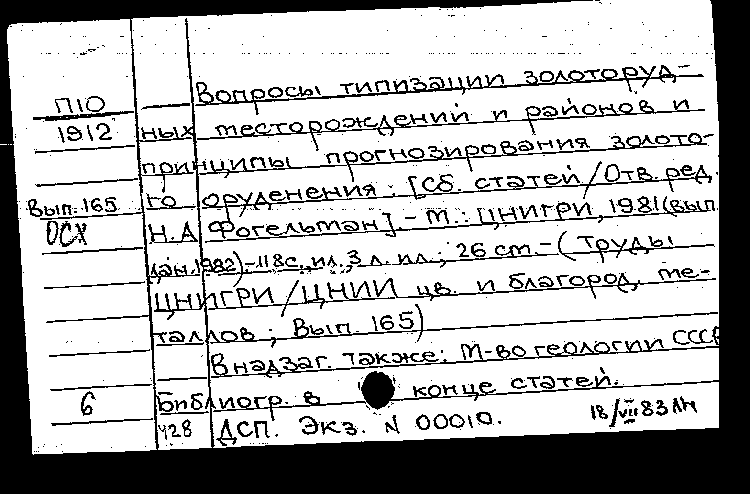 Вопросы типизации золоторуд-
П10
1912 ных месторождений и районов и
принципы прогнозирования золото-
Вып. 165 го оруденения: [Сб. статей/Отв. ред.
ОСХ Н.А. Фогельман]. - М.: ЦНИГРИ, 1981(вып.
дан. 1982). - 118с., ил., 3 л. ил.; 26 см. - (Труды
ЦНИГРИ/ЦНИИ цв. и благород. ме-
таллов; Вып. 165)
В надзаг. также: М-во геологии СССР
6 Библиогр. в конце статей.
428 ДСП. Экз. N 00010. 18/VII 83